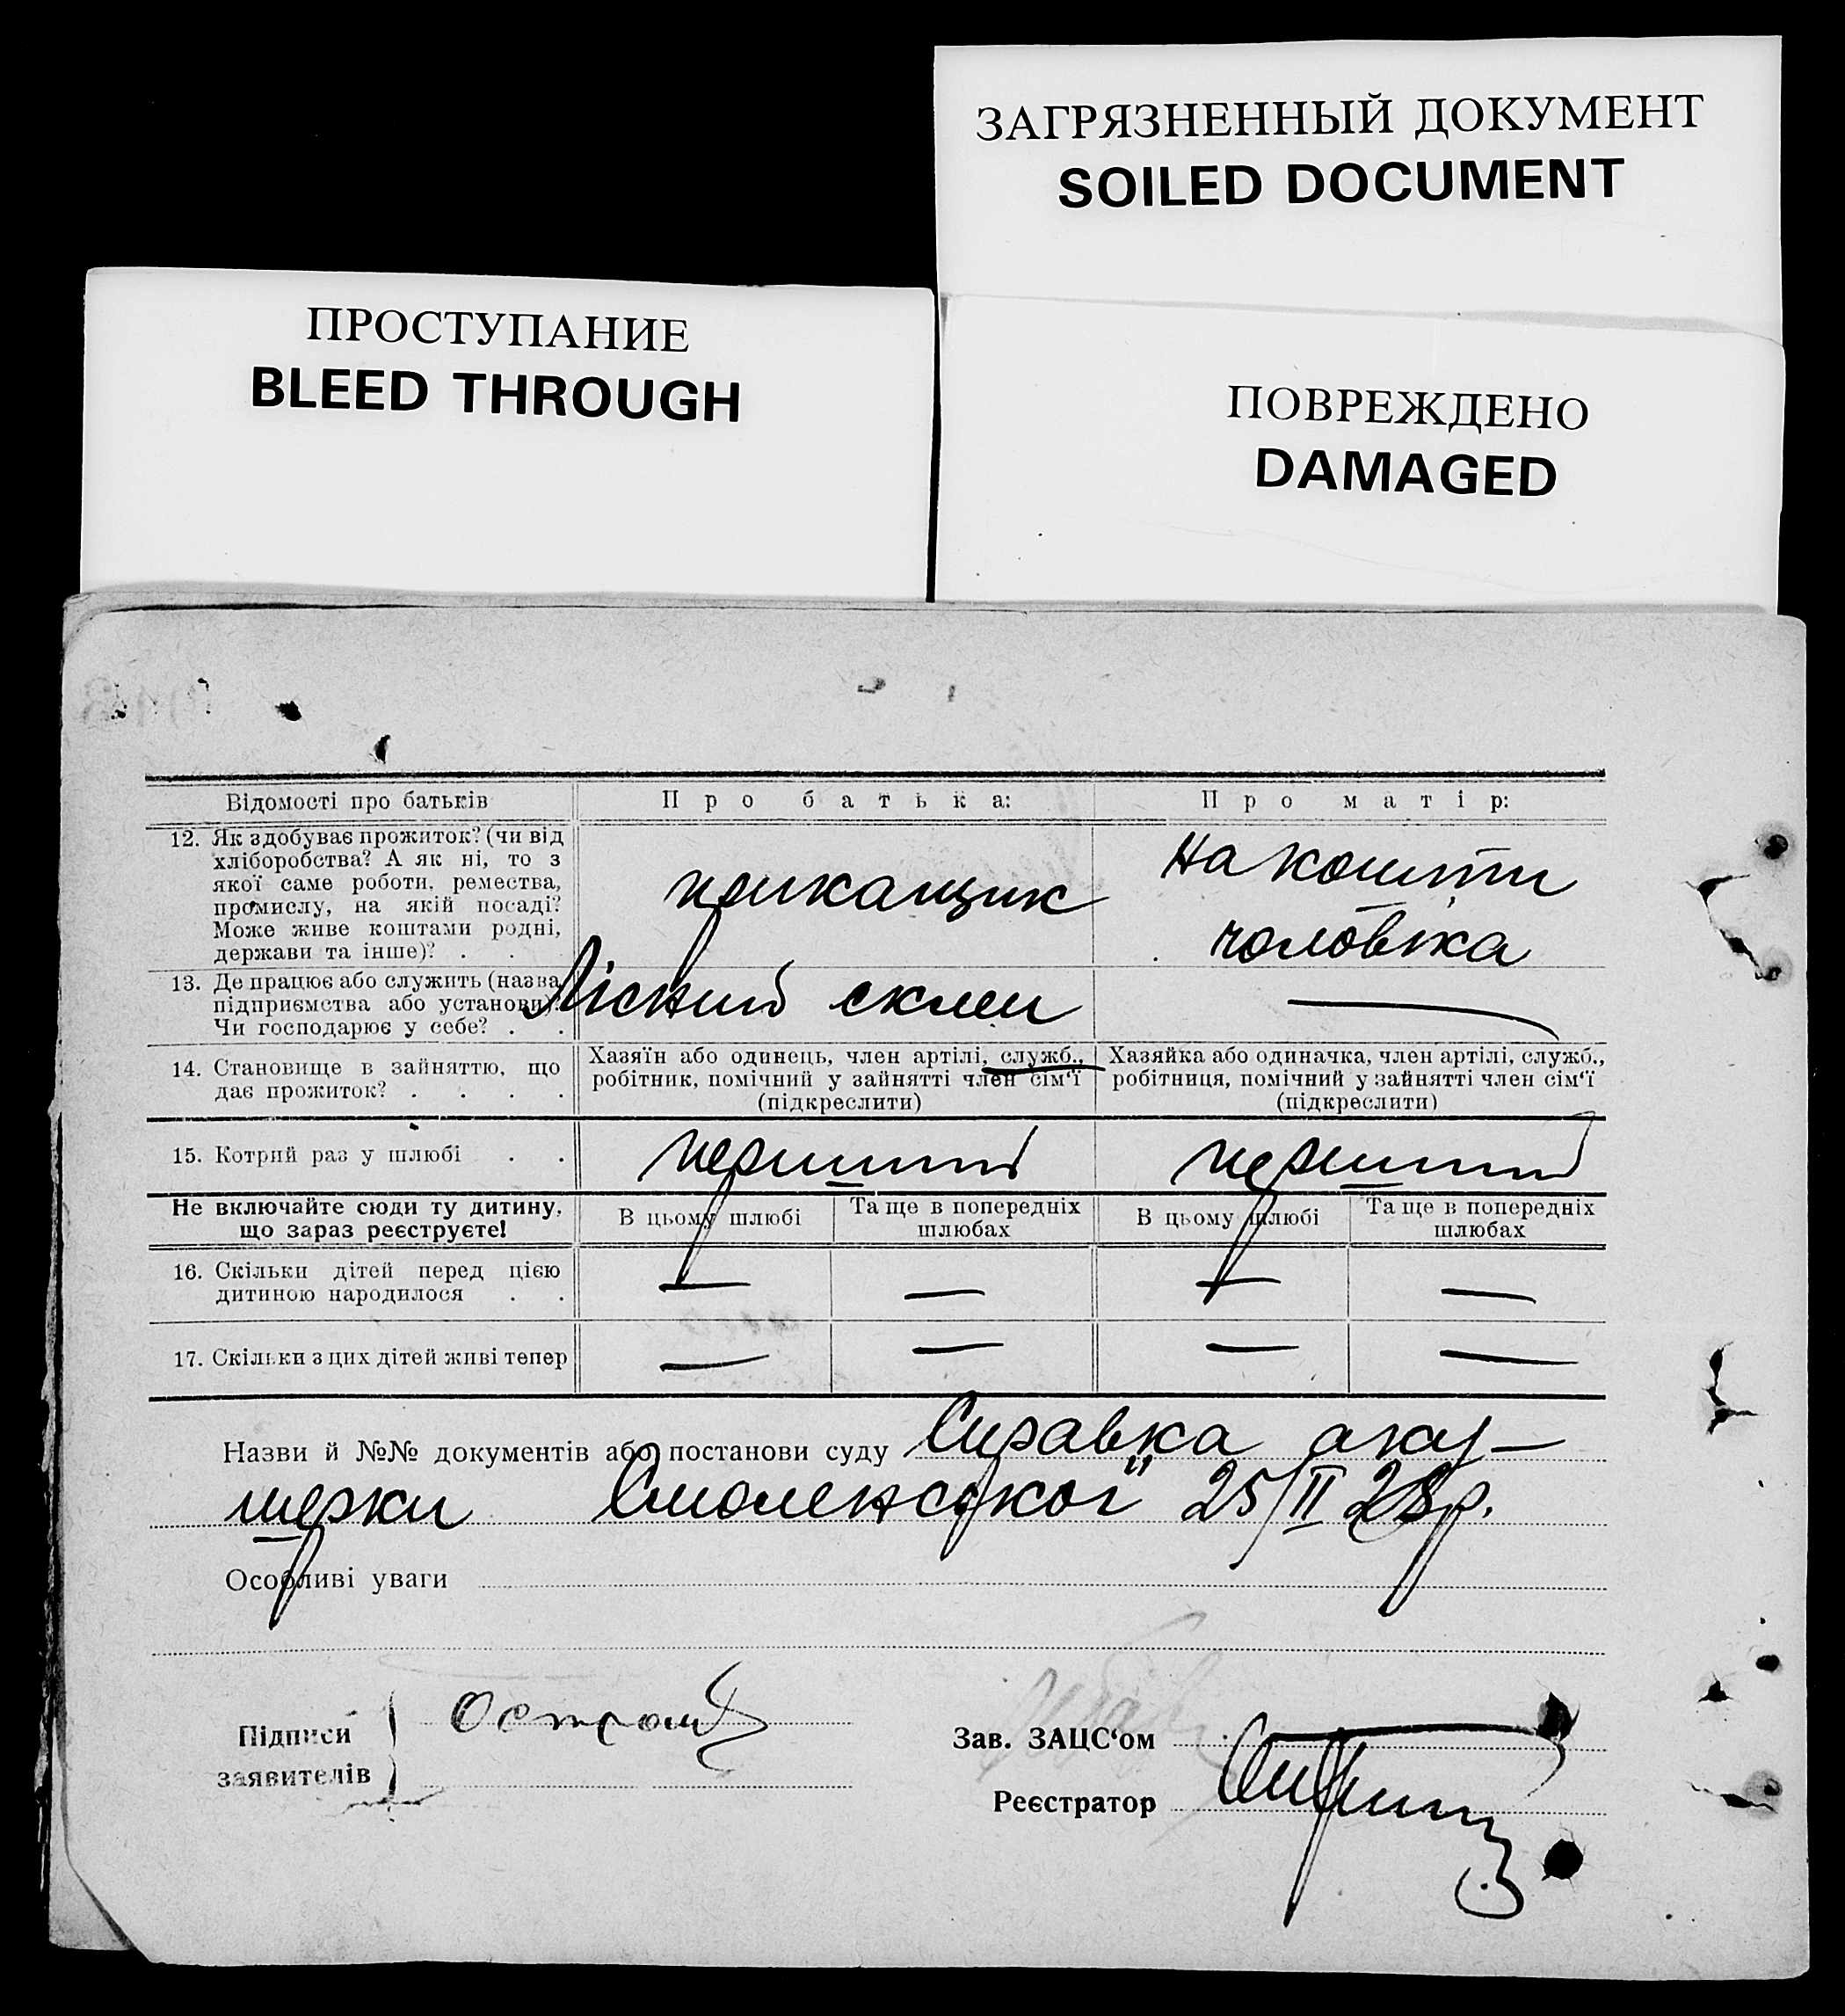 ЗАГРЯЗНЕННЫЙ ДОКУМЕНТ
SOILED DOCUMENT
ПРОСТУПАНИЕ
BLEED THROUGH
ПОВРЕЖДЕНО
DAMAGED
Відомості про батьків
Про батька:
Про матір:
12. Як здобуває прожиток? (чи від
хліборобства? А як ні, то з
якої саме роботи, ремества,
промислу, на якій посаді?
Може живе коштами родні,
держави та інше)? . .
прикащик
на кошти
чоловіка
13. Де працює або служить (назва
підприємства або установи)?
Чи господарює у себе? . .
Лісний склеп
—
14. Становище в зайняттю, що
дає прожиток? . . . .
Хазяїн або одинець, член артілі, служб.,
робітник, помічний у зайнятті член сім'ї
(підкреслити)
Хазяйка або одиначка, член артілі, служб.,
робітниця, помічний у зайнятті член сім'ї
(підкреслити)
15. Котрий раз у шлюбі . .
перший
перший
Не включайте сюди ту дитину,
що зараз реєструєте!
В цьому шлюбі
Та ще в попередніх
шлюбах
В цьому шлюбі
Та ще в попередніх
шлюбах
16. Скільки дітей перед цією
дитиною народилося . .
— — — —
17. Скільки з цих дітей живі тепер
— — — —
Назви й №№ документів або постанови суду Справка аку-
шерки Смоленської 25/II 28р.
Особливі уваги
Підписи
заявителів
Зав. ЗАЦС'ом
Реєстратор